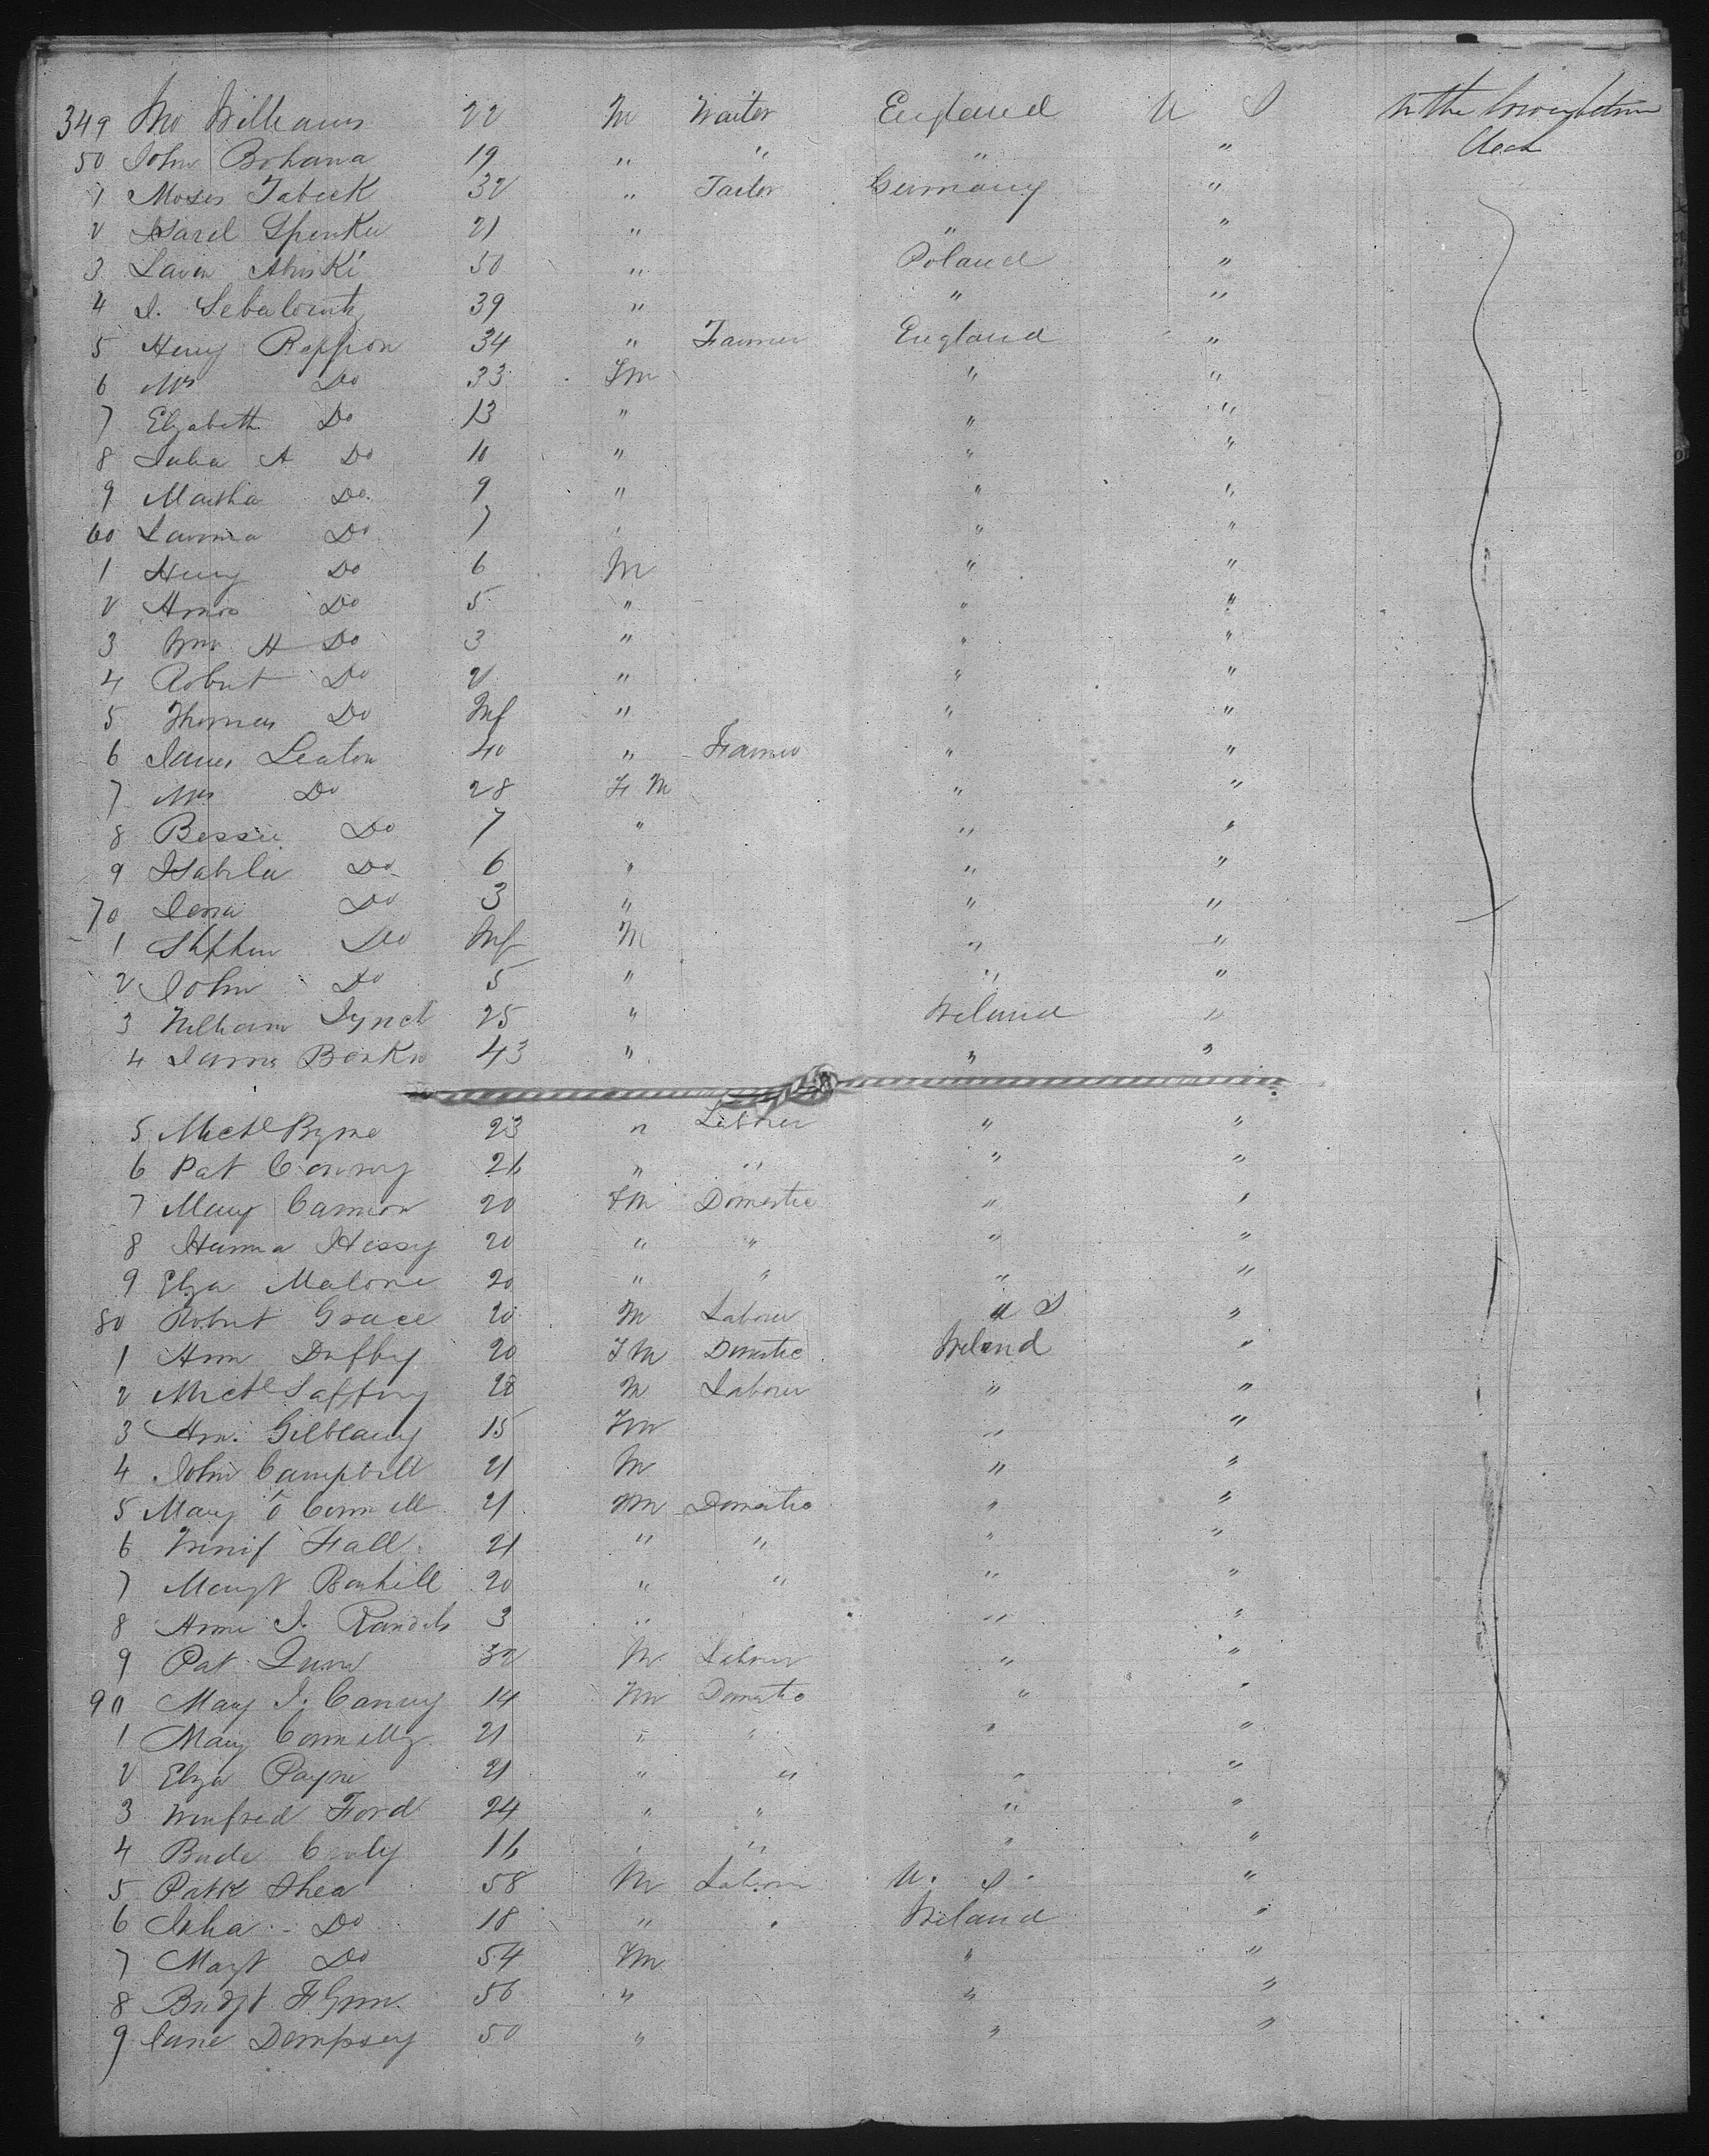 349 Jno Williams 22 M Waiter England U S In the
50 John Bohana 19 " " " " deck
1 Moses Tabeck 32 " Tailor Germany "
2 Isarel 21 " " "
3 30 " Poland "
4 I. 39 " " "
5 Henry 34 " Farmer England "
6 Mrs Do 33 Fm " "
7 Elzabeth Do 13 " " "
8 Julia A Do 10 " " "
9 Martha Do 9 " " "
60 Lavinia Do 7 " " "
1 Henry Do 6 M " "
2 Amos Do 5 " " "
3 Wm H Do 3 " " "
4 Robert Do 2 " " "
5 Thomas Do Inf " " "
6 James Leaton 40 " Farmer " "
7 Mrs Do 28 F M " "
8 Bessie Do 7 " " "
9 Isabela Do 6 " " "
70 Do 3 " " "
1 Stephen Do Inf M " "
2 John Do 5 " " "
3 William Lynch 25 " Ireland "
4 James 43 " " "
5 Michl Byrne 23 " Laborer " "
6 Pat Conroy 26 " " " "
7 Mary Cannon 20 FM Domestic " "
8 Hanna Hessy 20 " " " "
9 Elza Malone 20 " " " "
80 Robert Grace 20 M Laborer U S "
1 Ann Duffey 20 FM Domestic Ireland "
2 Michl 28 M Laborer " "
3 Ann. 15 Fm " "
4 John Campbell 21 M " "
5 Mary O Connell 21 FM Domestic " "
6 Winif Fall 21 " " " "
7 Margt 20 " " " "
8 Anne J. 3 " " "
9 Pat Quinn 32 M Laborer " "
90 Mary J. 14 Fm Domestic " "
1 Mary Connelly 21 " " " "
2 Elza Payne 21 " " " "
3 Winfred Ford 24 " " " "
4 16 " " " "
5 Patk Shea 58 M Laborer U. S. "
6 Do 18 " " Ireland "
7 Margt Do 54 Fm " "
8 Bridgt Flynn 56 " " "
9 Jane Dempsey 50 " " "